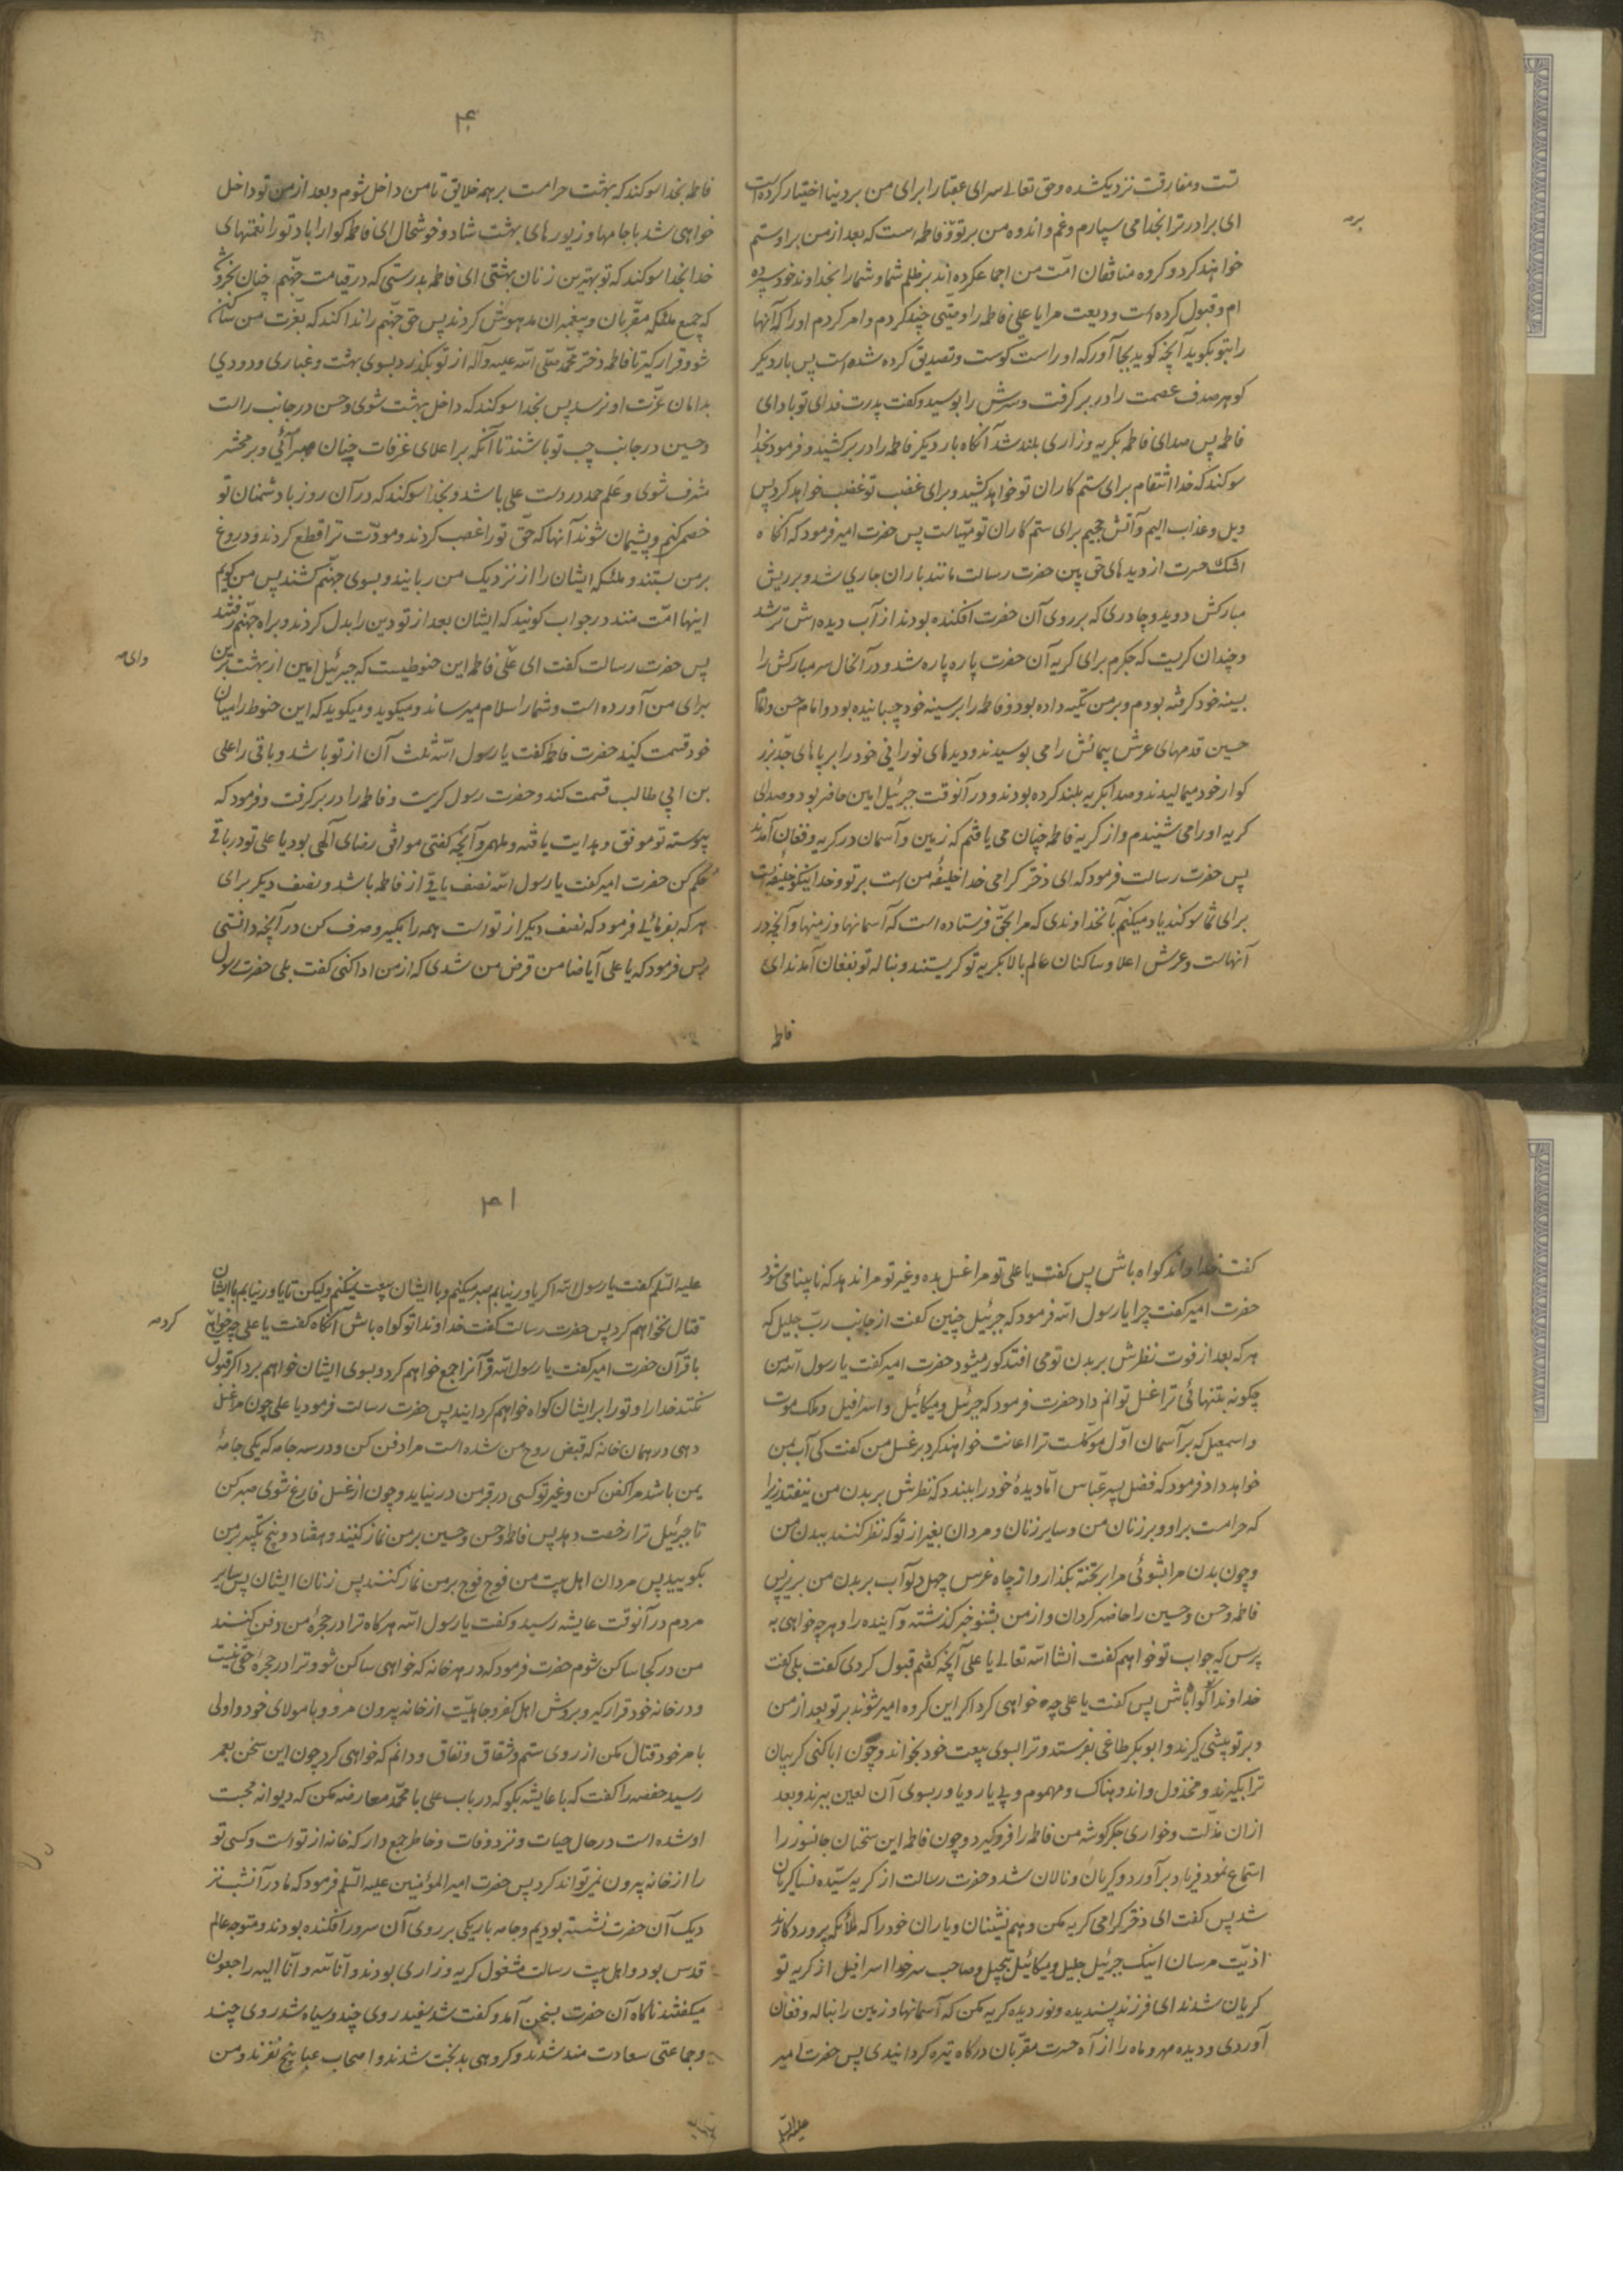 تست و مفارقت نزدیکشده و حق تعالی سرای عقبا را برای من بر دنیا اختیار کرده است
ای برادر ترا بخدا می سپارم و غم و اندوه من بر تو و فاطمه است که بعد از من بر او ستم
خواهند کرد و کروه منافقان امّت من اجماع کرده اند بر ظلم شما و شما را بخداوند خود سپرده
ام و قبول کرده است ودیعت مرا یا علی فاطمه را وصیّتی چند کردم و امر کردم او را که آنها
را بتو بکوید آنچه کوید بجا آور که او راست کوست و تصدیق کرده شده است پس بار دیکر
کوهر صدف عصمت را در بر کرفت و سرش را بوسید و کفت پدرت فدای تو باد ای
فاطمه پس صدای فاطمه بکریه و زاری بلند شد آنکاه بار دیکر فاطمه را در بر کشید و فرمود بخدا
سوکند که خدا انتقام برای ستم کاران تو خواهد کشید و برای غضب تو غضب خواهد کرد پس
ویل و عذاب الیم و آتش جحیم برای ستم کاران تو مهیّاست پس حضرت امیر فرمود که آنکاه
اشک حسرت از دیدهای حق بین حضرت رسالت مانند باران جاری شد و بر ریش
مبارکش دوید و چادری که بر روی آن حضرت افکنده بودند از آب دیده اش تر شد
و چندان کریست که جکرم برای کریه آن حضرت پاره پاره شد و در آنحال سر مبارکش را
بسینه خود کرفته بودم و بر من تکیه داده بود و فاطمه را بر سینه خود چسبانیده بود و امام حسن و امام
حسین قدمهای عرش پیمائش را می بوسیدند و دیدهای نورانی خود را بر پاهای جدّ بزر
کوار خود میمالیدند و صدا بکریه بلند کرده بودند و در آنوقت جبرئیل امین حاضر بود و صدای
کریه او را می شنیدم و از کریه فاطمه چنان می یافتم که زمین و آسمان در کریه و فغان آمدند
پس حضرت رسالت فرمود که ای دختر کرامی خدا خلیفهٔ من است بر تو و خدا نیکو خلیفه است
برای شما سوکند یاد میکنم بآنخداوندی که مرا بحق فرستاده است که آسمانها و زمینها و آنچه در
آنهاست و عرش اعلا و ساکنان عالم بالا بکریه تو کریستند و بناله تو بفغان آمدند ای
فاطمه
۴۰
فاطمه بخدا سوکند که بهشت حرامست بر همه خلایق تا من داخل شوم و بعد از من تو داخل
خواهی شد با جامها و زیورهای بهشت شاد و خوشحال ای فاطمه کوارا باد تو را نعمتهای
خدا بخدا سوکند که تو بهترین زنان بهشتی ای فاطمه بدرستی که در قیامت جهنّم چنان بخروشد
که جمیع ملئکه مقرّبان و پیغمبران مدهوش کردند پس حق جهنّم را ندا کند که بعزّت من ساکن
شو و قرار کیر تا فاطمه دختر محمّد صلّی الله علیه و آله از تو بکذرد بسوی بهشت و غباری و دودی
بدامان عزّت او نرسد پس بخدا سوکند که داخل بهشت شوی و حسن در جانب راست
و حسین در جانب چپ تو باشند تا آنکه بر اعلای غرفات جنان برآئی و بر محشر
مشرف شوی و عَلم حمد در دست علی باشد و بخدا سوکند که در آن روز با دشمنان تو
خصمی کنم و پشیمان شوند آنها که حقّ تو را غصب کردند و مودّت ترا قطع کردند و دروغ
بر من بستند و ملئکه ایشان را از نزدیک من ربایند و بسوی جهنّم کشند پس من کویم
اینها امّت منند در جواب کویند که ایشان بعد از تو دین را بدل کردند و براه جهنّم رفتند
وای
پس حضرت رسالت کفت ای علی فاطمه این حنوطیست که جبرئیل امین از بهشت برین
برای من آورده است و شما را سلام میرساند و میکوید و میکوید که این حنوط را میان
خود قسمت کنید حضرت فاطمه کفت یا رسول الله ثلث آن از تو باشد و باقی را علی
بن ابی طالب قسمت کند و حضرت رسول کریست و فاطمه را در بر کرفت و فرمود که
پیوسته تو موفق و هدایت یافته و ملهمی و آنچه کفتی موافق رضای آلهی بود یا علی تو در باقی
حکم کن حضرت امیر کفت یا رسول الله نصف باقی از فاطمه باشد و نصف دیکر برای
هر که بفرمائی فرمود که نصف دیکر از تو است همه را بکیر و صرف کن در آنچه دانستی
پس فرمود که یا علی آیا ضامن قرض من شدی که از من ادا کنی کفت بلی حضرت رسول
کفت خداوندا کواه باش پس کفت یا علی تو مرا غسل بده و غیر تو مرا ندهد که نابینا می شود
حضرت امیر کفت چرا یا رسول الله فرمود که جبرئیل چنین کفت از جانب ربّ جلیل که
هر که بعد از فوت نظرش بر بدن تو می افتد کور میشود حضرت امیر کفت یا رسول الله من
چکونه بتنهائی ترا غسل توانم داد حضرت فرمود که جبرئیل و میکائیل و اسرافیل و ملک موت
و اسمعیل که بر آسمان اوّل موکّلست ترا اعانت خواهند کرد بر غسل من کفت کی آب بمن
خواهد داد فرمود که فضل پسر عبّاس امّا دیدهٔ خود را ببندد که نظرش بر بدن من نیفتد زیرا
که حرامست بر او و بر زنان من و سایر زنان و مردان بغیر از تو که نظر کنند ببدن من
و چون بدن مرا بشوئی مرا بر تخته بکذار و از چاه غرس چهل دلو آب بر بدن من بریز پس
فاطمه و حسن و حسین را حاضر کردان و از من بشنو خبر کذشته و آینده را و هر چه خواهی به
پرس که جواب تو خواهم کفت انشا الله تعالی یا علی آنچه کفتم قبول کردی کفت بلی کفت
خداوندا کواه باش پس کفت یا علی چه خواهی کرد اکر این کروه امیر شوند بر تو بعد از من
و بر تو پیشی کیرند و ابو بکر طاغی بفرستد و ترا بسوی بیعت خود بخواند و چون ابا کنی کریبان
ترا بکیرند و مخذول و اندوهناک و مهموم و بی یار و یاور بسوی آن لعین ببرند و بعد
از ان مذلّت و خواری جکر کوشه من فاطمه را فرو کیرد و چون فاطمه این سخنان جانسوز را
استماع نمود فریاد بر آورد و کریان و نالان شد و حضرت رسالت از کریه سیّده نسا کریان
شد پس کفت ای دختر کرامی کریه مکن و هم نشینان و یاران خود را که ملائکه پروردکارند
اذیّت مرسان اینک جبرئیل جلیل و میکائیل و صاحب سر خدا اسرافیل از کریه تو
کریان شدند ای فرزند پسندیده و نور دیده کریه مکن که آسمانها و زمین را بناله و فغان
آوردی و دیده مهر و ماه را از آه حسرت مقرّبان درکاه تیره کردانیدی پس حضرت امیر
علیه السّلام
۴۱
علیه السّلم کفت یا رسول الله اکر یاور نیابم صبر میکنم و با ایشان بیعت نمیکنم ولیکن تا یاور نیابم با ایشان
قتال نخواهم کرد پس حضرت رسالت کفت خداوندا تو کواه باش آنکاه کفت یا علی چه خواهی
کرد
با قرآن حضرت امیر کفت یا رسول الله قرآنرا جمع خواهم کرد و بسوی ایشان خواهم برد اکر قبول
نکنند خدا را و تو را بر ایشان کواه خواهم کردانید پس حضرت رسالت فرمود یا علی چون مرا غسل
دهی در همان خانه که قبض روح من شده است مرا دفن کن و در سه جامه که یکی جامهٔ
یمن باشد مرا کفن کن و غیر تو کسی در قبر من در نیاید و چون از غسل فارغ شوی صبر کن
تا جبرئیل ترا رخصت دهد پس فاطمه و حسن و حسین بر من نماز کنید و هفتاد و پنج تکبیر بر من
بکویید پس مردان اهل بیت من فوج فوج بر من نماز کنند پس زنان ایشان پس سایر
مردم در آنوقت عایشه رسید و کفت یا رسول الله هر کاه ترا در حجرهٔ من دفن کنند
من در کجا ساکن شوم حضرت فرمود که در هر خانه که خواهی ساکن شو و ترا در حجره حقّی نیست
و در خانه خود قرار کیر و بروش اهل کفر و جاهلیّت از خانه بیرون مرو و با مولای خود و اولی
بامر خود قتال مکن از روی ستم و شقاق و نفاق و دانم که خواهی کرد چون این سخن بعمر
رسید حفصه را کفت که با عایشه بکو که در باب علی با محمّد معارضه مکن که دیوانه محبت
او شده است در حال حیات و نزد وفات و خاطر جمع دار که خانه از تو است و کسی تو
را از خانه بیرون نمیتواند کرد پس حضرت امیر المؤمنین علیه السّلم فرمود که ما در آنشب نز
دیک آن حضرت نشسته بودیم و جامه باریکی بر روی آن سرور افکنده بودند و متوجه عالم
قدس بود و اهل بیت رسالت مشغول کریه و زاری بودند و انّا لله و انّا الیه راجعون
میکفتند ناکاه آن حضرت بسخن آمد و کفت شد سفید روی چند و سیاه شد روی چند
و جماعتی سعادت مند شدند و کروهی بدبخت شدند و اصحاب عبا پنج نفرند و من